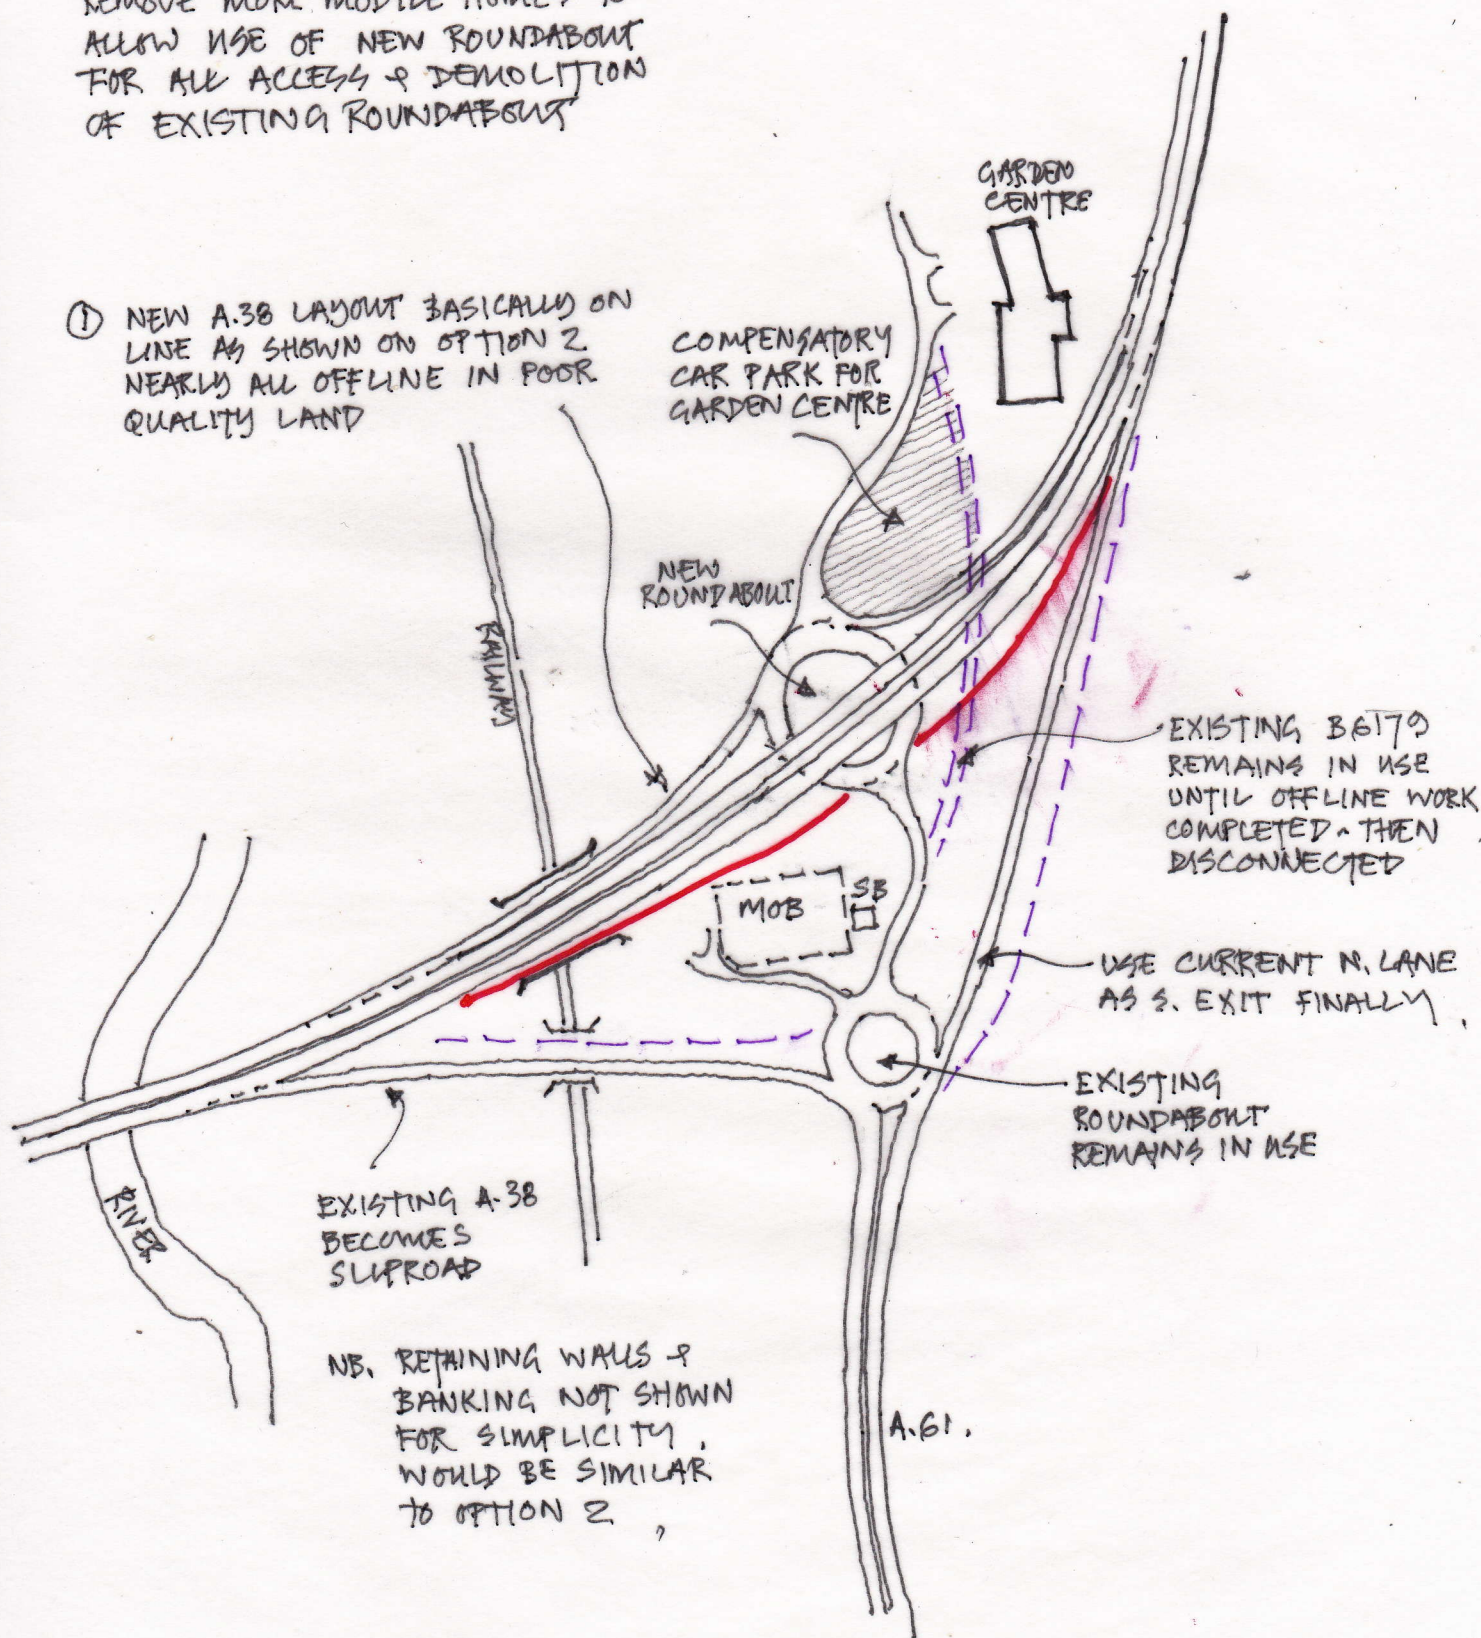 REMOVE MORE MOBILE HOMES TO
ALLOW USE OF NEW ROUNDABOUT
FOR ALL ACCESS & DEMOLITION
OF EXISTING ROUNDABOUT
GARDEN
CENTRE
① NEW A.38 LAYOUT BASICALLY ON
LINE AS SHOWN ON OPTION 2
NEARLY ALL OFFLINE IN POOR
QUALITY LAND
COMPENSATORY
CAR PARK FOR
GARDEN CENTRE
NEW
ROUNDABOUT
RAILWAY
EXISTING B6179
REMAINS IN USE
UNTIL OFFLINE WORK
COMPLETED - THEN
DISCONNECTED
MOB
SB
USE CURRENT N. LANE
AS S. EXIT FINALLY.
EXISTING
ROUNDABOUT
REMAINS IN USE
RIVER
EXISTING A.38
BECOMES
SLIPROAD
NB. RETAINING WALLS &
BANKING NOT SHOWN
FOR SIMPLICITY.
WOULD BE SIMILAR
TO OPTION 2,
A.61.